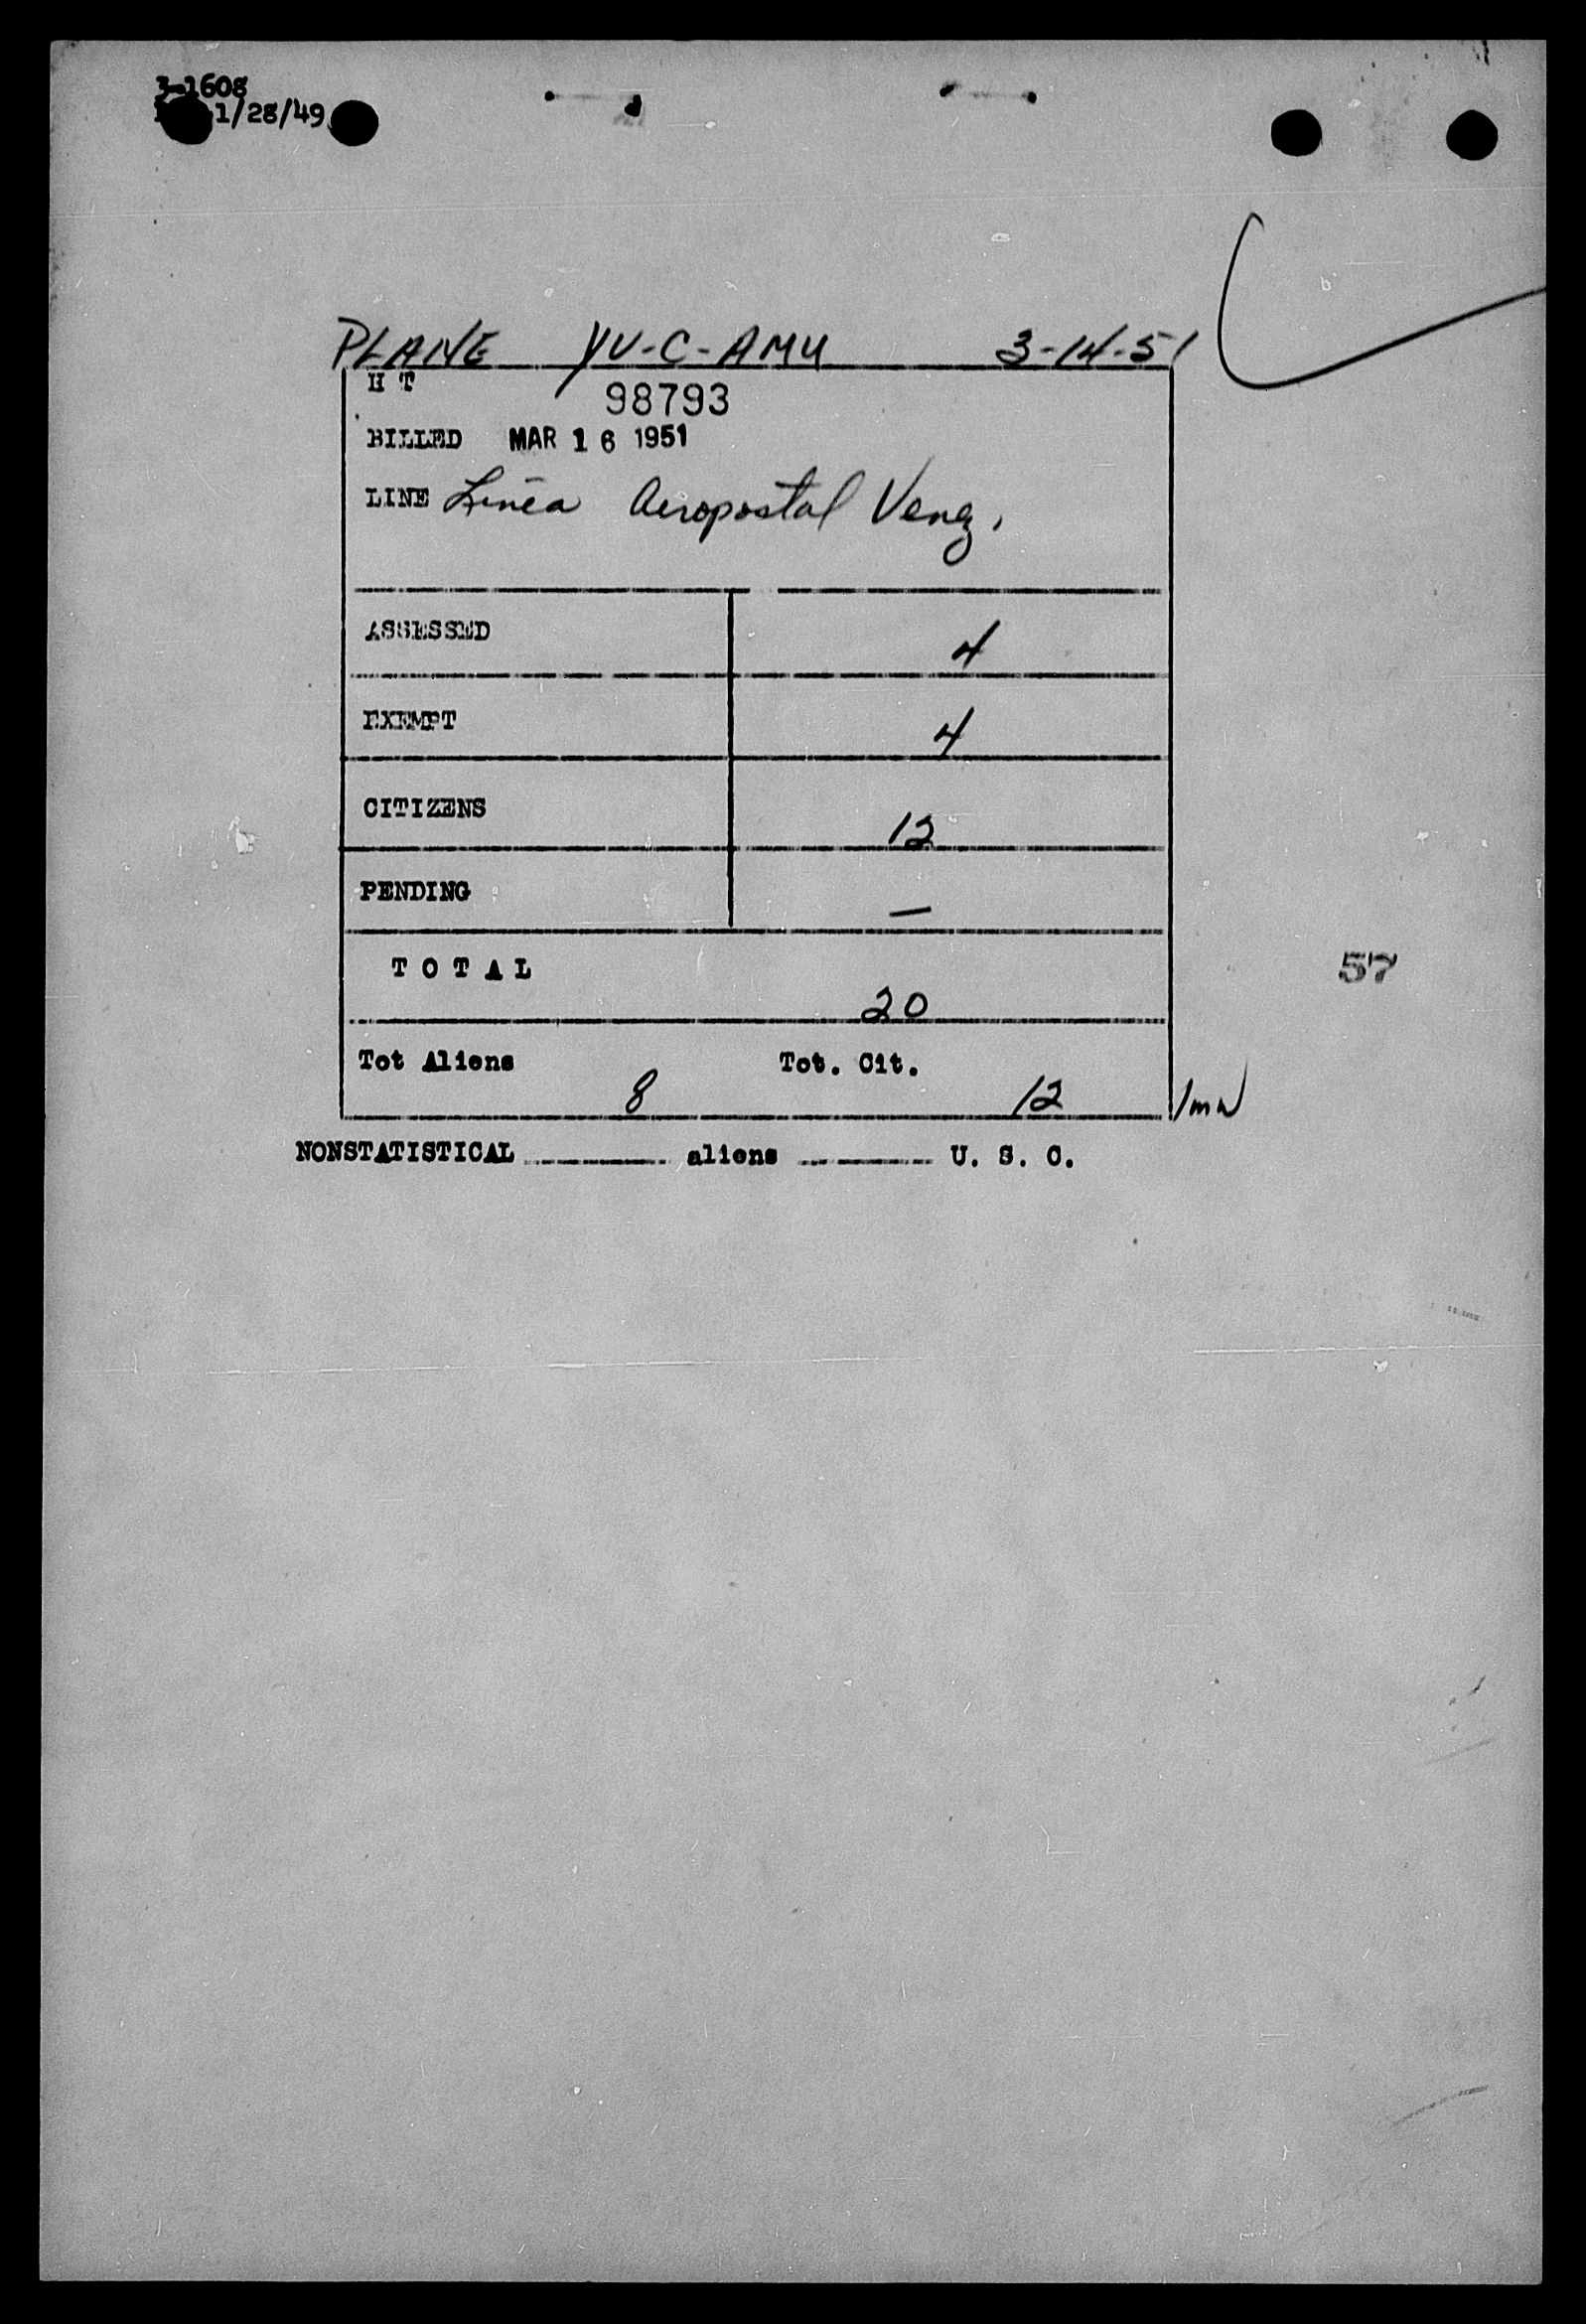 3-1608
1/28/49
PLANE YV-C-AMU 3-14-51
H T
98793
BILLED MAR 16 1951
LINE Linea Aeropostal Venez.
ASSESSED 4
EXEMPT 4
CITIZENS 12
PENDING —
TOTAL 20
57
Tot Aliens 8 Tot. Cit. 12
NONSTATISTICAL ________ aliens ________ U. S. C.